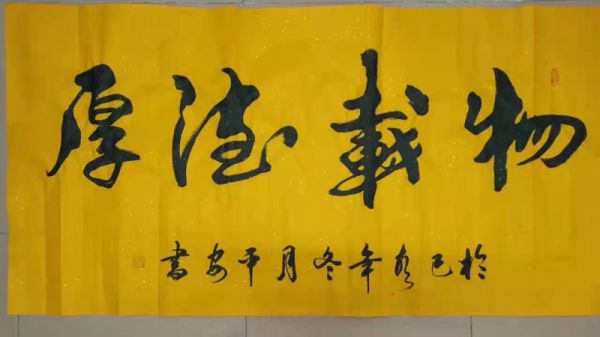 厚德載物
於己亥年冬月平安書